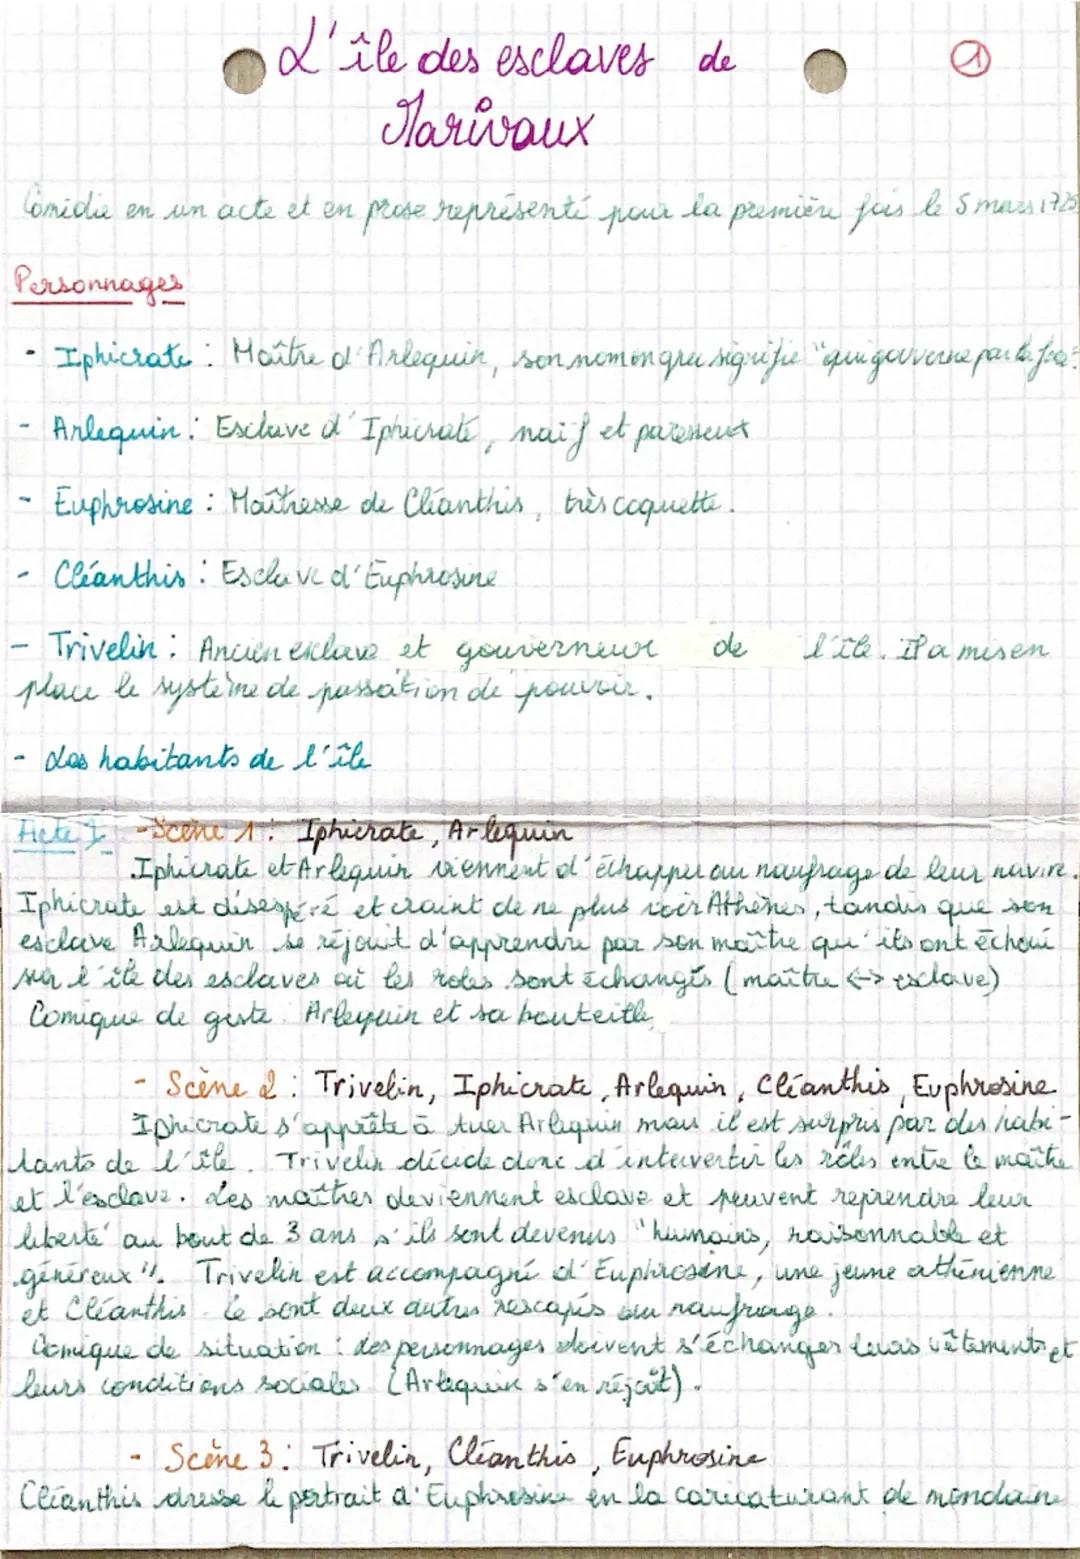 L'île des esclaves de
Marivaux
1
Comédie en un acte et en prose représenté pour la première fois le 5 mars 1725
Personnages
- Iphicrate : Maître d'Arlequin, son nom en grec signifie "qui gouverne par la force"
- Arlequin : Esclave d'Iphicrate, naïf et paresseux
- Euphrosine : Maîtresse de Cléanthis, très coquette.
- Cléanthis : Esclave d'Euphrosine
- Trivelin : Ancien esclave et gouverneur de l'île. Il a mis en
place le système de passation de pouvoir.
- Les habitants de l'île
Acte I - Scène 1 : Iphicrate, Arlequin
Iphicrate et Arlequin viennent d'échapper au naufrage de leur navire.
Iphicrate est désespéré et craint de ne plus voir Athènes, tandis que son
esclave Arlequin se réjouit d'apprendre par son maître qu'ils ont échoué
sur l'île des esclaves où les roles sont échangés (maître <-> esclave)
Comique de geste : Arlequin et sa bouteille
- Scène 2 : Trivelin, Iphicrate, Arlequin, Cléanthis, Euphrosine
Iphicrate s'apprête à tuer Arlequin mais il est surpris par des habi-
tants de l'île. Trivelin décide donc d'intervertir les rôles entre le maître
et l'esclave. Les maîtres deviennent esclave et peuvent reprendre leur
liberté au bout de 3 ans s'ils sont devenus "humains, raisonnable et
généreux". Trivelin est accompagné d'Euphrosine, une jeune athénienne
et Cléanthis. Ce sont deux autres rescapés du naufrage.
Comique de situation : les personnages doivent s'échanger leurs vêtements et
leurs conditions sociales (Arlequin s'en réjouit).
- Scène 3 : Trivelin, Cléanthis, Euphrosine
Cléanthis dresse le portrait d'Euphrosine en la caricaturant de mondaine